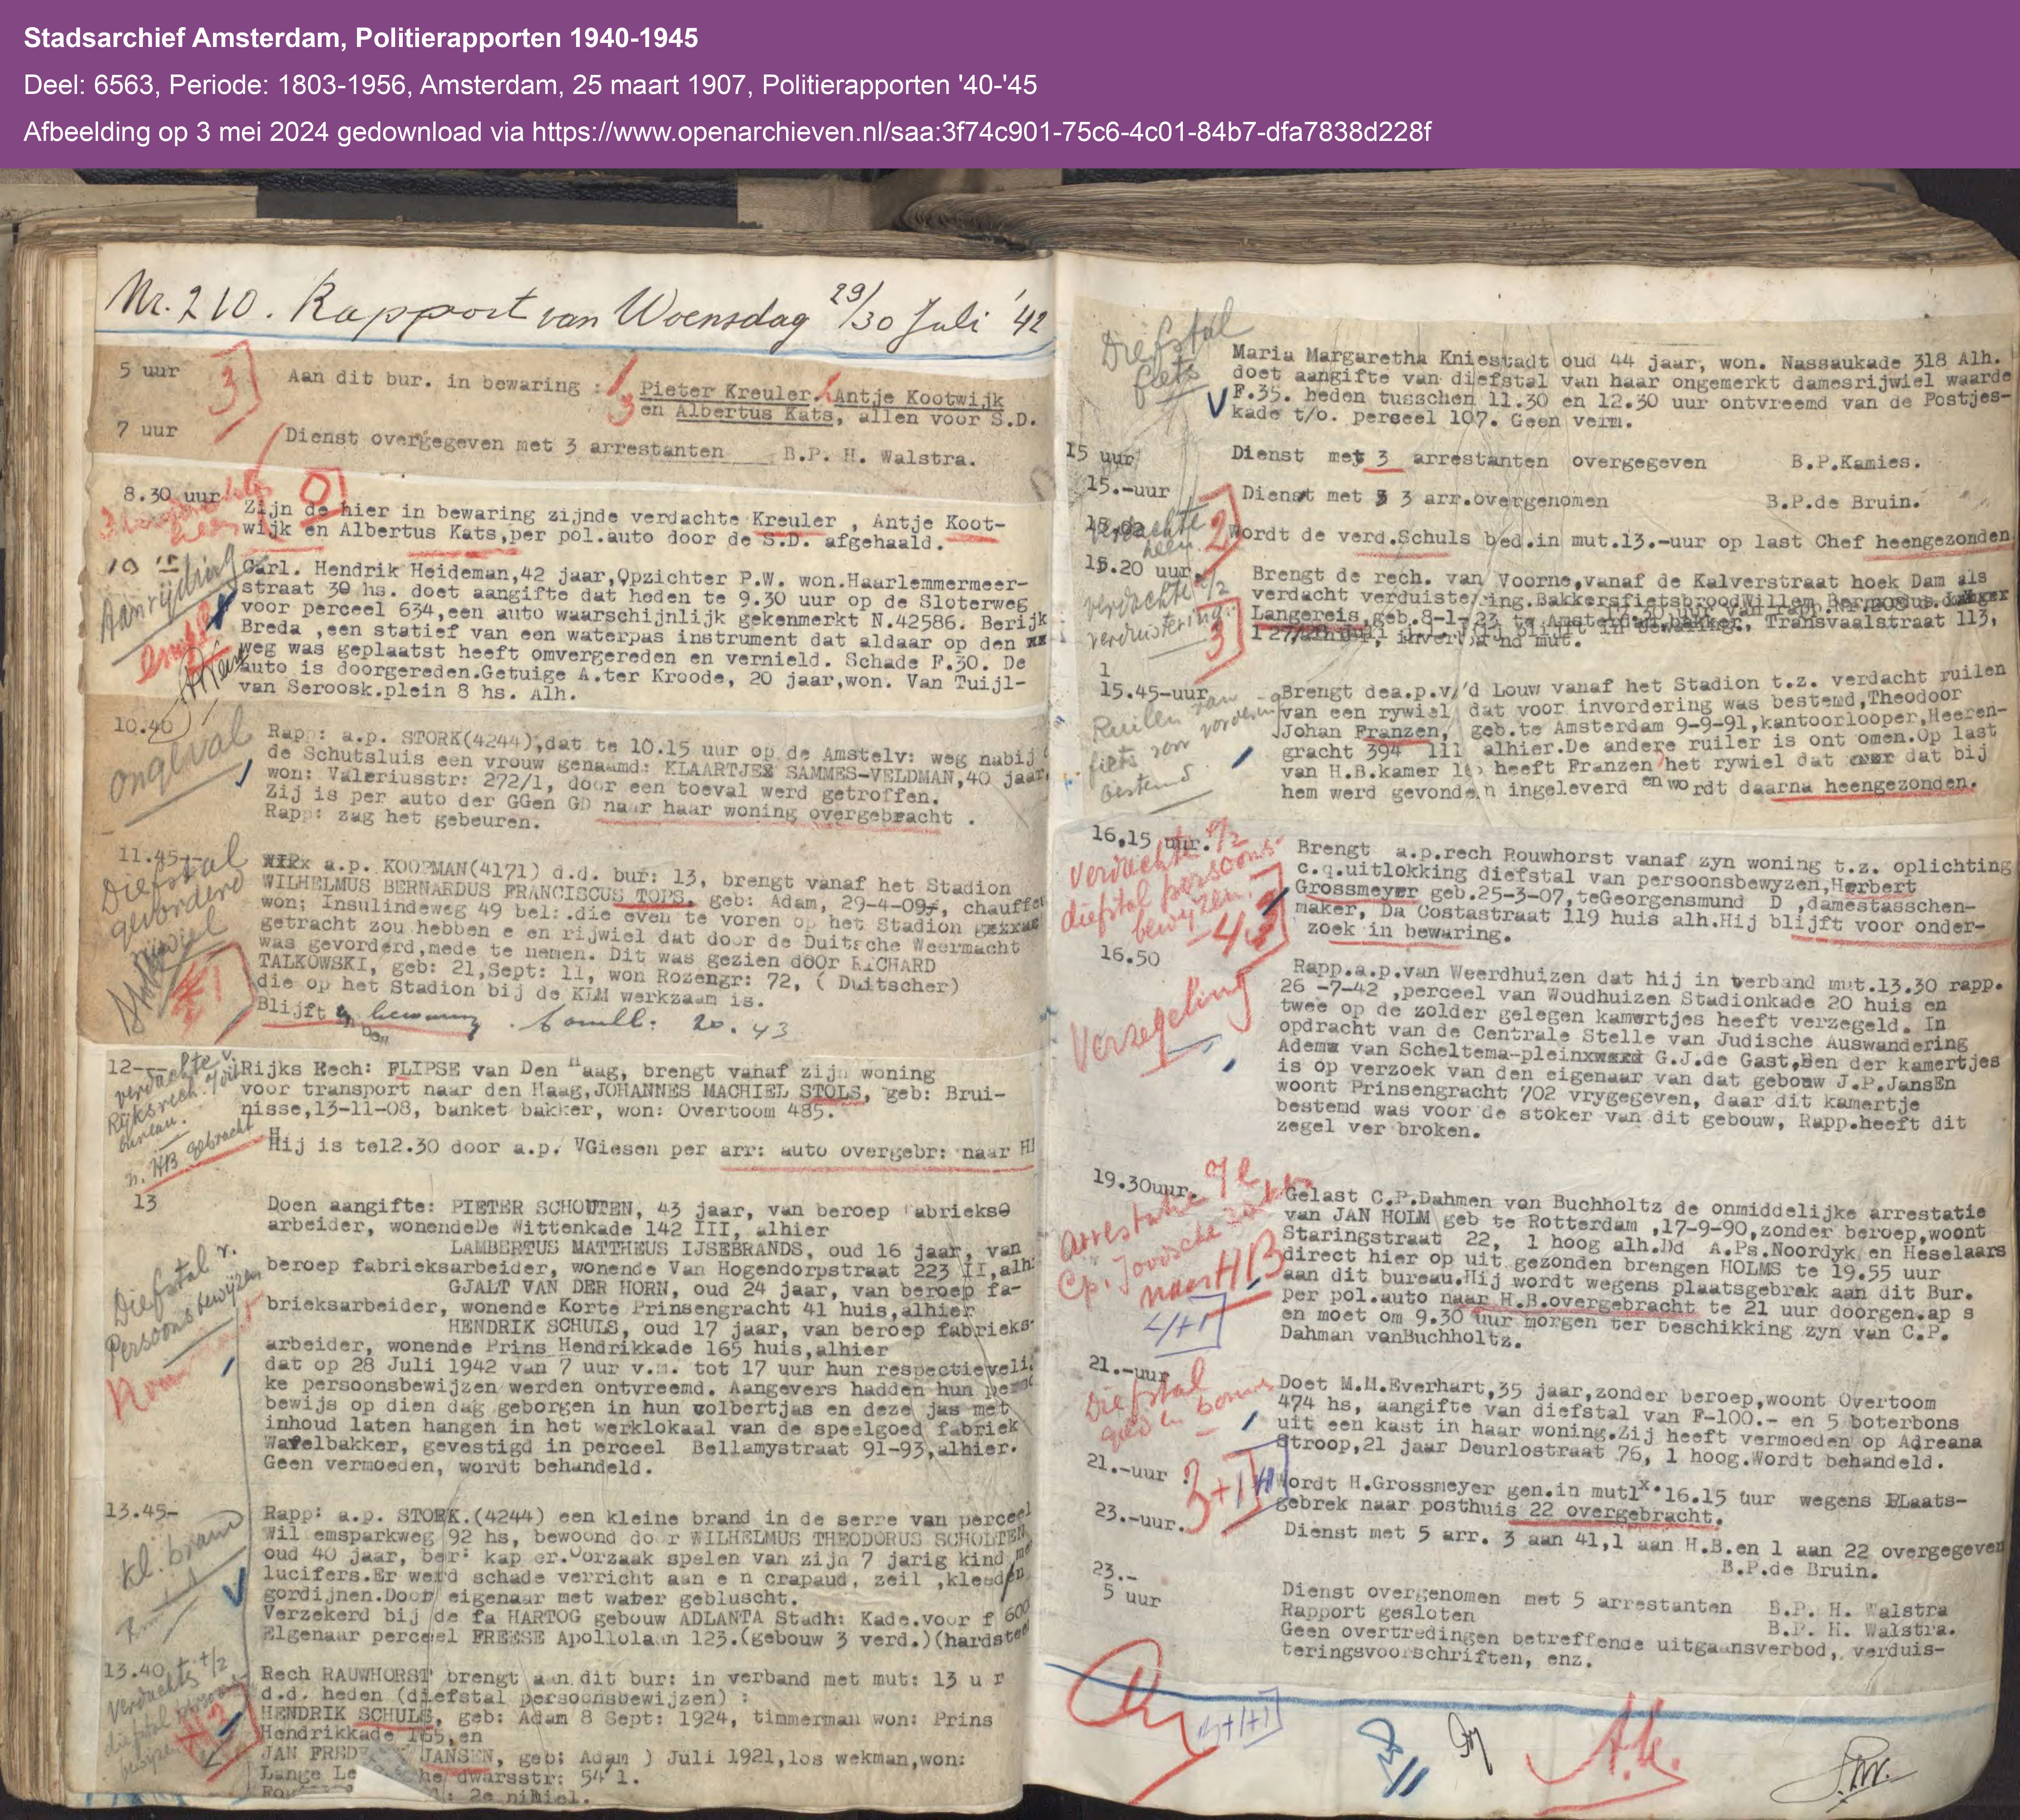 Stadsarchief Amsterdam, Politierapporten 1940-1945
Deel: 6563, Periode: 1803-1956, Amsterdam, 25 maart 1907, Politierapporten '40-'45
Afbeelding op 3 mei 2024 gedownload via https://www.openarchieven.nl/saa:3f74c901-75c6-4c01-84b7-dfa7838d228f
Nr. 210. Rapport van Woensdag 29/30 Juli '42
5 uur
3
Aan dit bur. in bewaring : Pieter Kreuler. Antje Kootwijk
en Albertus Kats, allen voor S.D.
7 uur
Dienst overgegeven met 3 arrestanten B.P. H. Walstra.
8.30 uur
0
Zijn de hier in bewaring zijnde verdachte Kreuler , Antje Koot-
wijk en Albertus Kats,per pol.auto door de S.D. afgehaald.
10 15
Aanrijding
Carl. Hendrik Heideman,42 jaar,Opzichter P.W. won.Haarlemmermeer-
straat 30 hs. doet aangifte dat heden te 9.30 uur op de Sloterweg
voor perceel 634,een auto waarschijnlijk gekenmerkt N.42586. Berijk
Breda ,een statief van een waterpas instrument dat aldaar op den xx
weg was geplaatst heeft omvergereden en vernield. Schade F.30. De
auto is doorgereden.Getuige A.ter Kroode, 20 jaar,won. Van Tuijl-
van Seroosk.plein 8 hs. Alh.
10.40
ongeval
Rapp: a.p. STORK(4244),dat te 10.15 uur op de Amstelv: weg nabij
de Schutsluis een vrouw genaamd: KLAARTJEX SAMMES-VELDMAN,40 jaar,
won: Valeriusstr: 272/1, door een toeval werd getroffen.
Zij is per auto der GGen GD naar haar woning overgebracht .
Rapp: zag het gebeuren.
11.45--
Diefstal
gevorderd
rijwiel
a.p. KOOPMAN(4171) d.d. bur: 13, brengt vanaf het Stadion
WILHELMUS BERNARDUS FRANCISCUS TOPS, geb: Adam, 29-4-09, chauffeu
won; Insulindeweg 49 bel:.die even te voren op het Stadion
getracht zou hebben e en rijwiel dat door de Duitsche Weermacht
was gevorderd,mede te nemen. Dit was gezien dOOr RICHARD
TALKOWSKI, geb: 21,Sept: 11, won Rozengr: 72, ( Duitscher)
die op het Stadion bij de KLM werkzaam is.
Blijft in bewaring 20.43
12--
verdachte v.
Rijksrech.
bureau.
n. HB gebracht
Rijks Rech: FLIPSE van Den Haag, brengt vanaf zijn woning
voor transport naar den Haag,JOHANNES MACHIEL STOLS, geb: Brui-
nisse,13-11-08, banket bakker, won: Overtoom 485.
Hij is te12.30 door a.p. VGiesen per arr: auto overgebr: naar H
13
Diefstal v.
Persoonsbewijzen
Doen aangifte: PIETER SCHOUTEN, 43 jaar, van beroep fabrieks
arbeider, wonendeDe Wittenkade 142 III, alhier
LAMBERTUS MATTHEUS IJSEBRANDS, oud 16 jaar, van
beroep fabrieksarbeider, wonende Van Hogendorpstraat 223 II,alh
GJALT VAN DER HORN, oud 24 jaar, van beroep fa-
brieksarbeider, wonende Korte Prinsengracht 41 huis,alhier
HENDRIK SCHULS, oud 17 jaar, van beroep fabrieks-
arbeider, wonende Prins Hendrikkade 165 huis,alhier
dat op 28 Juli 1942 van 7 uur v.m. tot 17 uur hun respectieveli
ke persoonsbewijzen werden ontvreemd. Aangevers hadden hun
bewijs op dien dag geborgen in hun colbertjas en deze jas met
inhoud laten hangen in het werklokaal van de speelgoed fabriek
Wafelbakker, gevestigd in perceel Bellamystraat 91-93,alhier.
Geen vermoeden, wordt behandeld.
13.45-
kl. brand
Rapp: a.p. STORK.(4244) een kleine brand in de serre van perceel
Wil emsparkweg 92 hs, bewoond doo r WILHELMUS THEODORUS SCHOLTEN
oud 40 jaar, ber: kap er.Oorzaak spelen van zijn 7 jarig kind me
lucifers.Er werd schade verricht aan e n crapaud, zeil ,kleeden
gordijnen.Door eigenaar met water gebluscht.
Verzekerd bij de fa HARTOG gebouw ADLANTA Stadh: Kade.voor f 600
Elgenaar perceel FREESE Apollolaan 123.(gebouw 3 verd.)(hardstee
13.40
Verdachte
diefstal persoons
bewijzen
Rech RAUWHORST brengt aan dit bur: in verband met mut: 13 u r
d.d. heden (diefstal persoonsbewijzen) :
HENDRIK SCHULS, geb: Adam 8 Sept: 1924, timmerman won: Prins
Hendrikkade 165,en
JAN FRED JANSEN, geb: Adam ) Juli 1921,los wekman,won:
Lange Le he dwarsstr: 54 1.
Diefstal
fiets
Maria Margaretha Kniestadt oud 44 jaar, won. Nassaukade 318 Alh.
doet aangifte van diefstal van haar ongemerkt damesrijwiel waarde
F.35. heden tusschen 11.30 en 12.30 uur ontvreemd van de Postjes-
kade t/o. perseel 107. Geen verm.
15 uur
Dienst met 3 arrestanten overgegeven B.P.Kamies.
15.-uur
Dienst met 3 3 arr.overgenomen B.P.de Bruin.
verdachte
heen
2
Wordt de verd.Schuls bed.in mut.13.-uur op last Chef heengezonden
15.20 uur
verdachte
verduistering
3
Brengt de rech. van Voorne,vanaf de Kalverstraat hoek Dam als
verdacht verduistering.BakkersfietsbroodWillem
Langereis,geb.8-1-23 te Amsterdam,bakker, Transvaalstraat 113,
15.45-uur
Ruilen van
fiets voor vordering
bestemd
Brengt dea.p.v/'d Louw vanaf het Stadion t.z. verdacht ruilen
van een rywiel dat voor invordering was bestemd,Theodoor
Johan Franzen, geb.te Amsterdam 9-9-91,kantoorlooper,Heeren-
gracht 394 111 alhier.De andere ruiler is ont omen.Op last
van H.B.kamer heeft Franzen het rywiel dat dat bij
hem werd gevonden ingeleverd en wordt daarna heengezonden.
16,15 uur.
verdachte
diefstal persoons-
bewijzen.
Brengt a.p.rech Rouwhorst vanaf zyn woning t.z. oplichting
c.q.uitlokking diefstal van persoonsbewyzen,Herbert
Grossmeyer geb.25-3-07,teGeorgensmund D ,damestasschen-
maker, Da Costastraat 119 huis alh.Hij blijft voor onder-
zoek in bewaring.
16.50
Verzegeling
Rapp.a.p.van Weerdhuizen dat hij in verband mut.13.30 rapp.
26 -7-42 ,perceel van Woudhuizen Stadionkade 20 huis en
twee op de zolder gelegen kamertjes heeft verzegeld. In
opdracht van de Centrale Stelle van Judische Auswandering
Adema van Scheltema-plein G.J.de Gast,Een der kamertjes
is op verzoek van den eigenaar van dat gebouw J.P.JansEn
woont Prinsengracht 702 vrygegeven, daar dit kamertje
bestemd was voor de stoker van dit gebouw, Rapp.heeft dit
zegel ver broken.
19.30uur.
arrestatie
Cp. Joodsche zaken
naar HB
Gelast C.P.Dahmen von Buchholtz de onmiddelijke arrestatie
van JAN HOLM geb te Rotterdam ,17-9-90,zonder beroep,woont
Staringstraat 22, 1 hoog alh.Dd A.Ps.Noordyk en Heselaars
direct hier op uit gezonden brengen HOLMS te 19.55 uur
aan dit bureau.Hij wordt wegens plaatsgebrek aan dit Bur.
per pol.auto naar H.B.overgebracht te 21 uur doorgen.ap s
en moet om 9.30 uur morgen ter beschikking zyn van C.P.
Dahman vonBuchholtz.
21.-uur
Diefstal
geld en bonnen
Doet M.M.Everhart,35 jaar,zonder beroep,woont Overtoom
474 hs, aangifte van diefstal van F-100.- en 5 boterbons
uit een kast in haar woning.Zij heeft vermoeden op Adreana
Stroop,21 jaar Deurlostraat 76, 1 hoog.Wordt behandeld.
21.-uur
3+1
Wordt H.Grossmeyer gen.in mut 16.15 uur wegens PLaats-
gebrek naar posthuis 22 overgebracht.
23.-uur.
Dienst met 5 arr. 3 aan 41,1 aan H.B.en 1 aan 22 overgegeven
B.P.de Bruin.
23.-
Dienst overgenomen met 5 arrestanten B.P. H. Walstra
5 uur
Rapport gesloten B.P. H. Walstra.
Geen overtredingen betreffende uitgaansverbod, verduis-
teringsvoorschriften, enz.